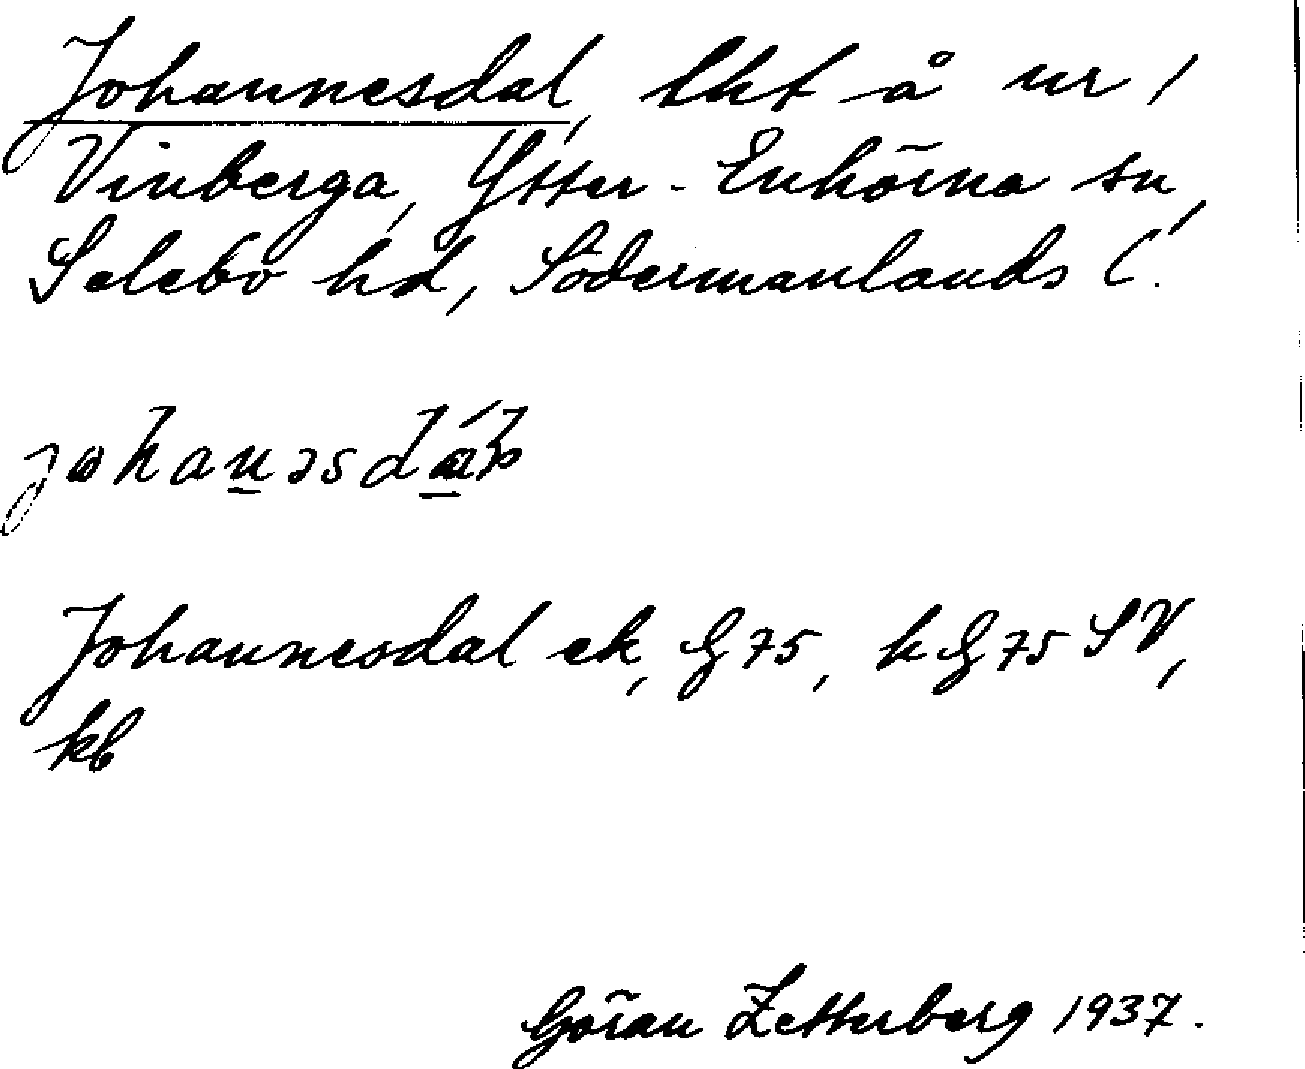 Johannesdal, lht å nr 1
Vinberga, Ytter-Enhörna sn,
Selebo hd, Södermanlands l.
Johannesdal ek, G 75, k G 75 SV,
kb
Göran Zetterberg 1937.